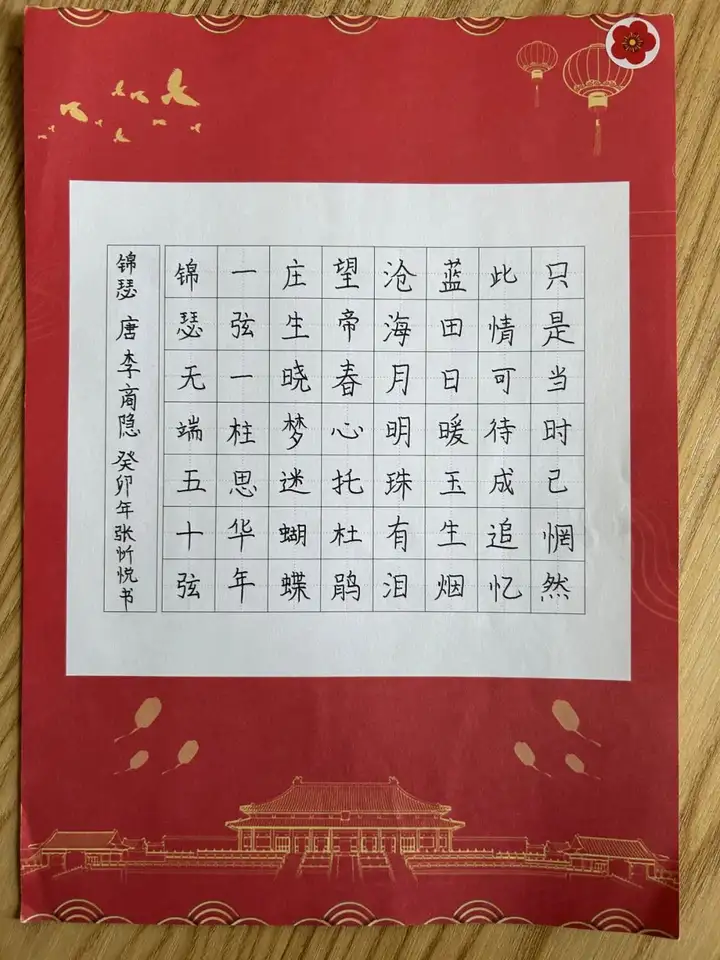 锦瑟 唐 李商隐 癸卯年张忻悦书
锦瑟无端五十弦
一弦一柱思华年
庄生晓梦迷蝴蝶
望帝春心托杜鹃
沧海月明珠有泪
蓝田日暖玉生烟
此情可待成追忆
只是当时已惘然